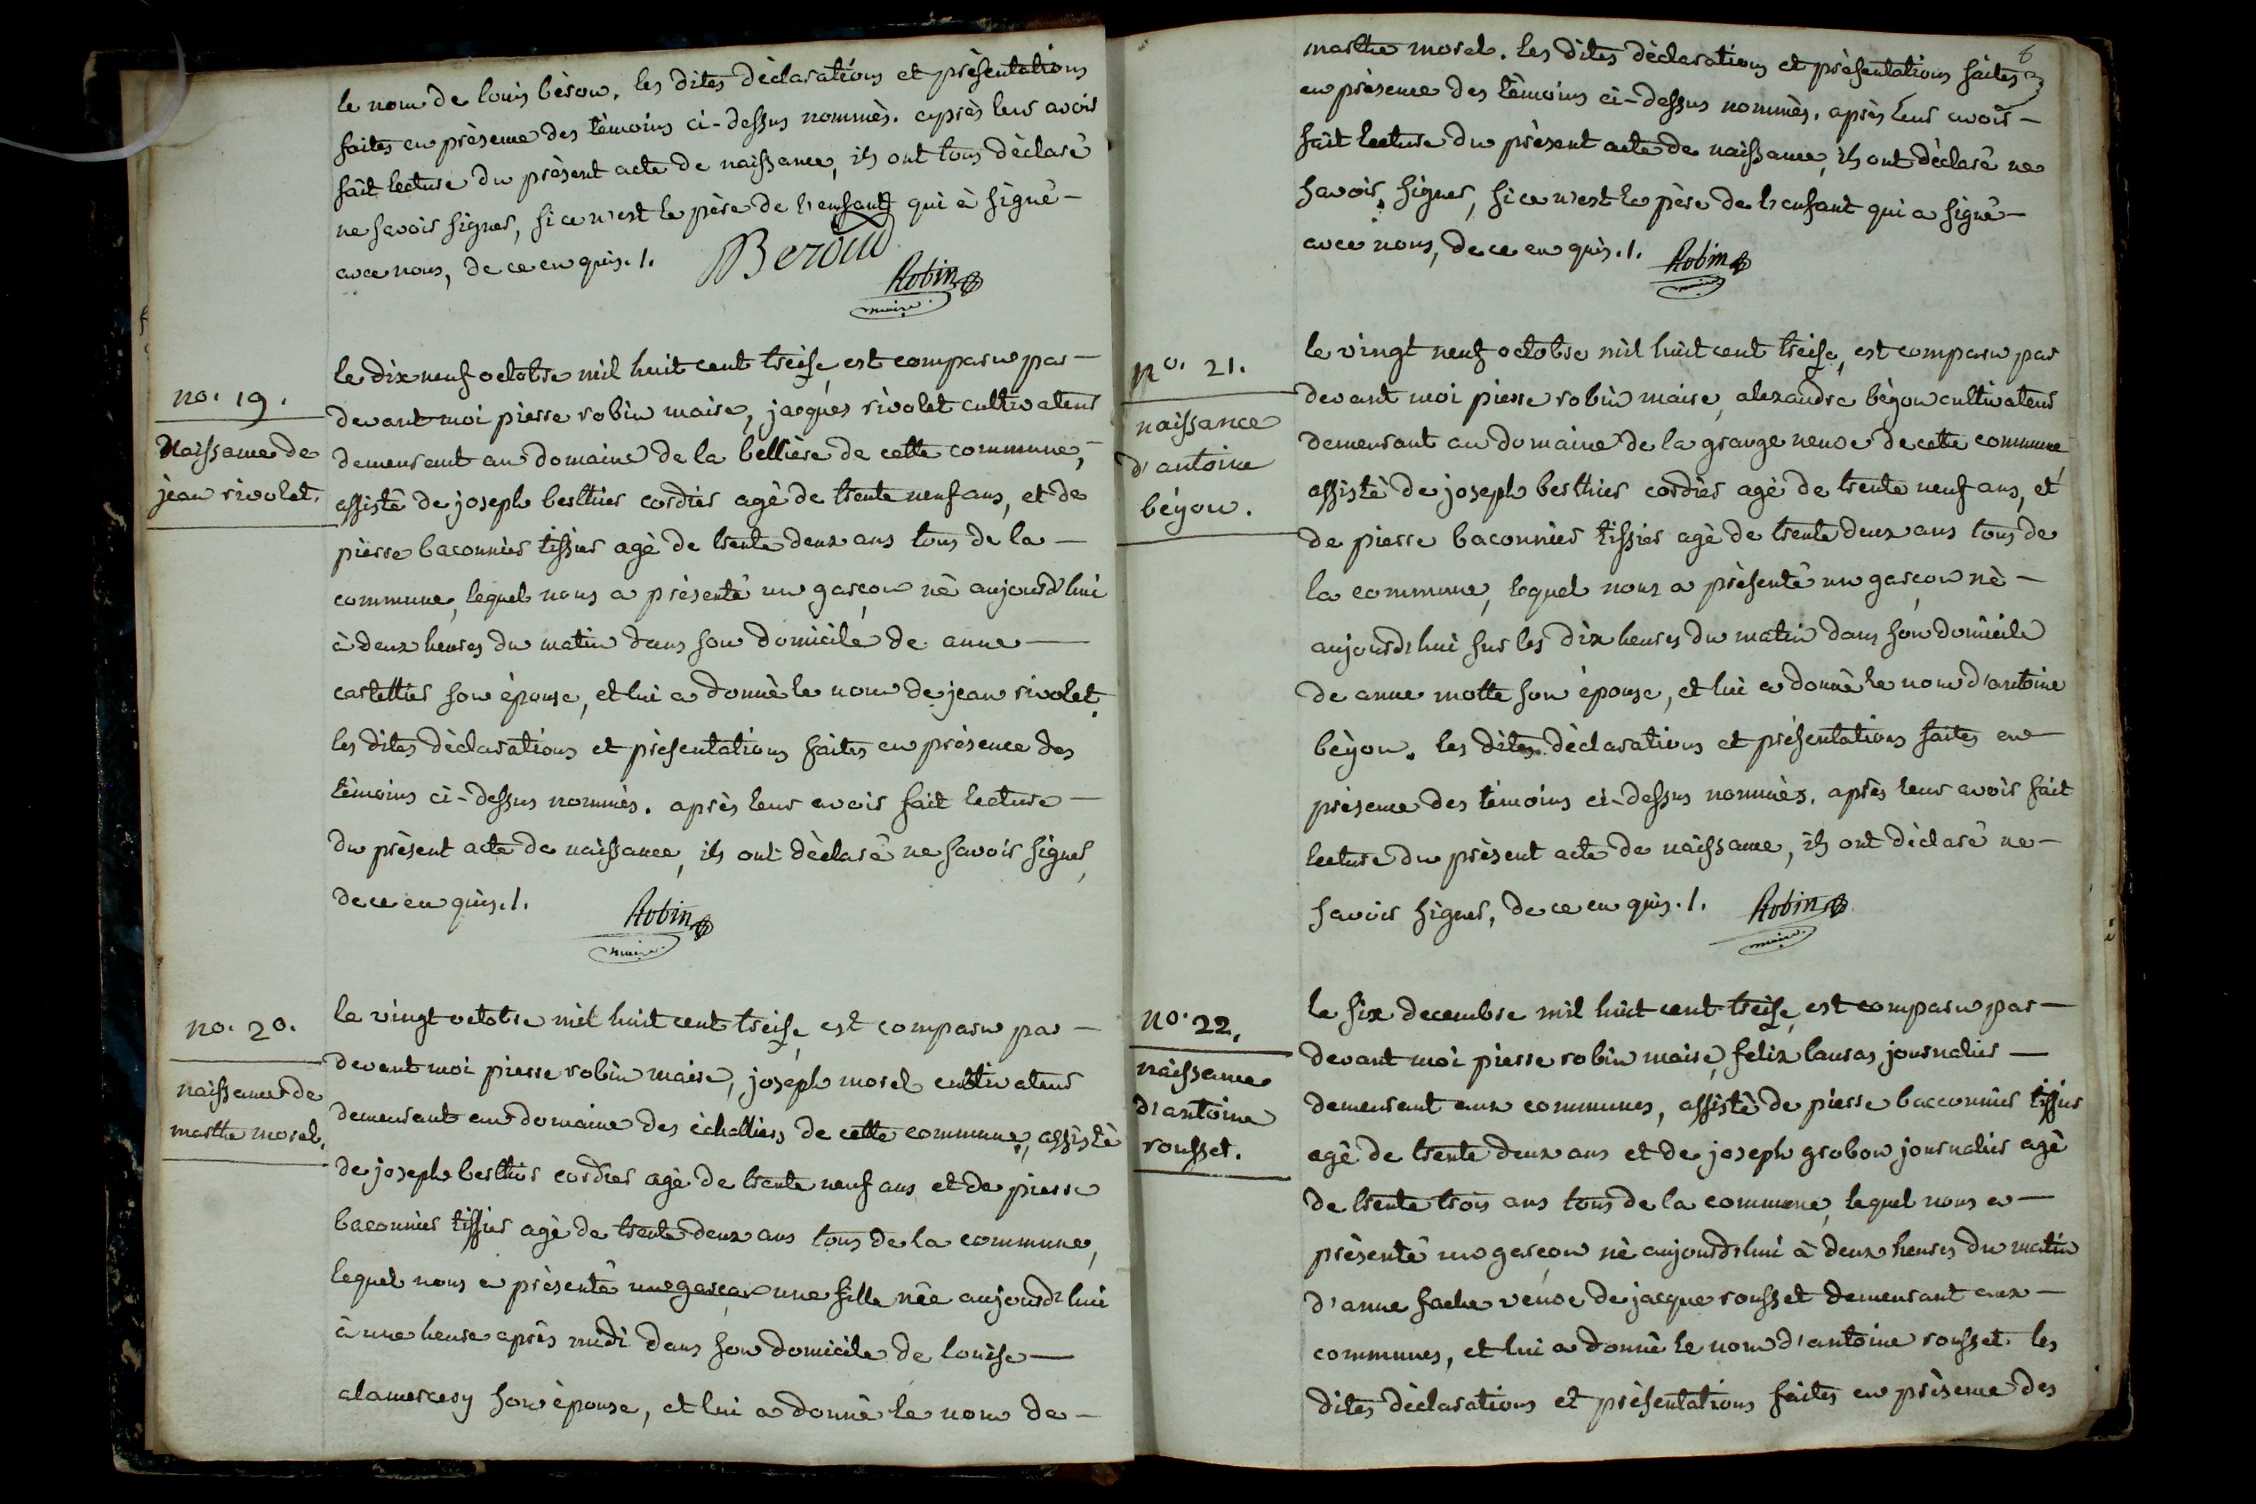 le nom de louis bérow. les dites dèclarations et présentations
faites en présence des tèmoins ci-dessus nommès. après leur avoir
fait lecture du prèsent acte de naissance, ils ont tous dèclaré
ne savoir signer, si ce n'est le père de l'enfant qui à signé -
avec nous, de ce enquis. /.
Robin
maire
no. 19.
Naissance de
jean rivolet.
le dix neuf octobre mil huit cent treise, est comparu par -
devant moi pierre robin maire, jacques rivolet cultivateur
demeurant au domaine de la bellière de cette commune, -
assisté de joseph berthier cordier agè de trente neuf ans, et de
pierre baconnier tissier agè de trente deux ans tous de la -
commune, lequel nous a présenté un garçon nè aujourd'hui
à deux heures du matin dans son domicile de anne -
castellier son épouse, et lui a donnè le nom de jean rivolet.
les dites dèclarations et présentations faites en présence des
tèmoins ci-dessus nommès. après leur avoir fait lecture -
du prèsent acte de naissance, ils ont dèclaré ne savoir signer,
de ce enquis. /.
Robin
maire
no. 20.
naissance de
marthe morel.
le vingt octobre mil huit cent treise, est comparu par -
devant moi pierre robin maire, joseph morel cultivateur
demeurant au domaine des échalliers de cette commune, assistè
de joseph berthier cordier agè de trente neuf ans et de pierre
baconnier tissier agè de trente deux ans tous de la commune,
lequel nous a présenté un garçon une fille née aujourd'hui
à une heure après midi dans son domicile de louise -
alamercery son épouse, et lui a donnè le nom de -
marthe morel. les dites dèclarations et prèsentations faites
en présence des tèmoins ci-dessus nommès. après leur avoir -
fait lecture du prèsent acte de naissance, ils ont dèclaré ne
savoir signer, si ce n'est le père de l'enfant qui a signé -
avec nous, de ce enquis. /.
Robin
maire
no. 21.
naissance
d'antoine
béyon.
le vingt neuf octobre mil huit cent treise, est comparu par
devant moi pierre robin maire, alexandre bèyon cultivateur
demeurant au domaine de la grange neuve de cette commune
assistè de joseph berthier cordier agè de trente neuf ans, et
de pierre baconnier tissier agè de trente deux ans tous de
la commune, lequel nous a présenté un garçon nè -
aujourd'hui sur les dix heures du matin dans son domicile
de anne motte son épouse, et lui a donnè le nom d'antoine
bèyon. les dites dèclarations et présentations faites en -
présence des tèmoins ci-dessus nommès. après leur avoir fait
lecture du prèsent acte de naissance, ils ont dèclaré ne -
savoir signer, de ce enquis. /.
Robin
maire
no. 22.
naissance
d'antoine
rousset.
le six decembre mil huit cent treise, est comparu par -
devant moi pierre robin maire, felix lauras journalier -
demeurant aux communes, assistè de pierre bacconnier tissier
agé de trente deux ans et de joseph grobon journalier agé
de trente trois ans tous de la commune, lequel nous a -
prèsenté un garçon nè aujourd'hui à deux heures du matin
d'anne fache veuve de jacque rousset demeurant aux -
communes, et lui a donnè le nom d'antoine rousset. les
dites dèclarations et présentations faites en présence des